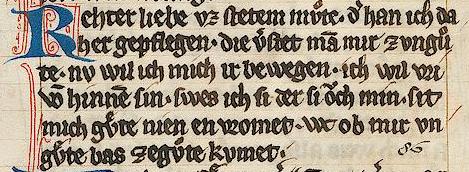 Rehter liebe vz stetem mv̊te · d͛ han ich da
her gepflegen · die v͛stet mā mir z vngv̊
te · nv wil ich mich ir bewegen · ich wil vri
vō hinnē sin · swes ich si der si ŏch min · sit
mich gv̊te nien en vromet · vn ob mir vn
gv̊te bas zegv̊te kvmet ·
86